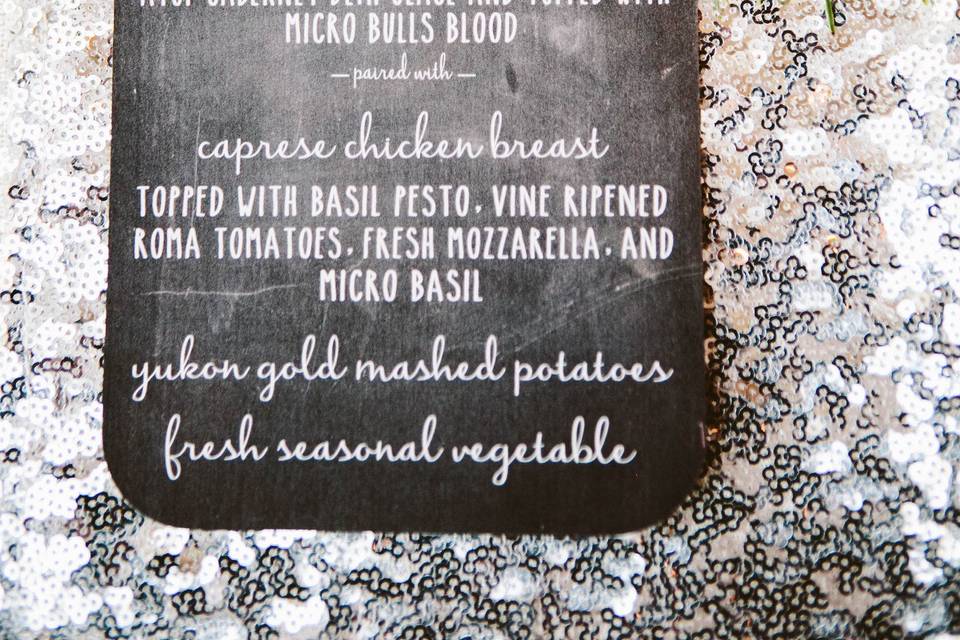 ATOP CABERNET DEMI GLACE AND TOPPED WITH
MICRO BULLS BLOOD
— paired with —
caprese chicken breast
TOPPED WITH BASIL PESTO, VINE RIPENED
ROMA TOMATOES, FRESH MOZZARELLA, AND
MICRO BASIL
yukon gold mashed potatoes
fresh seasonal vegetable